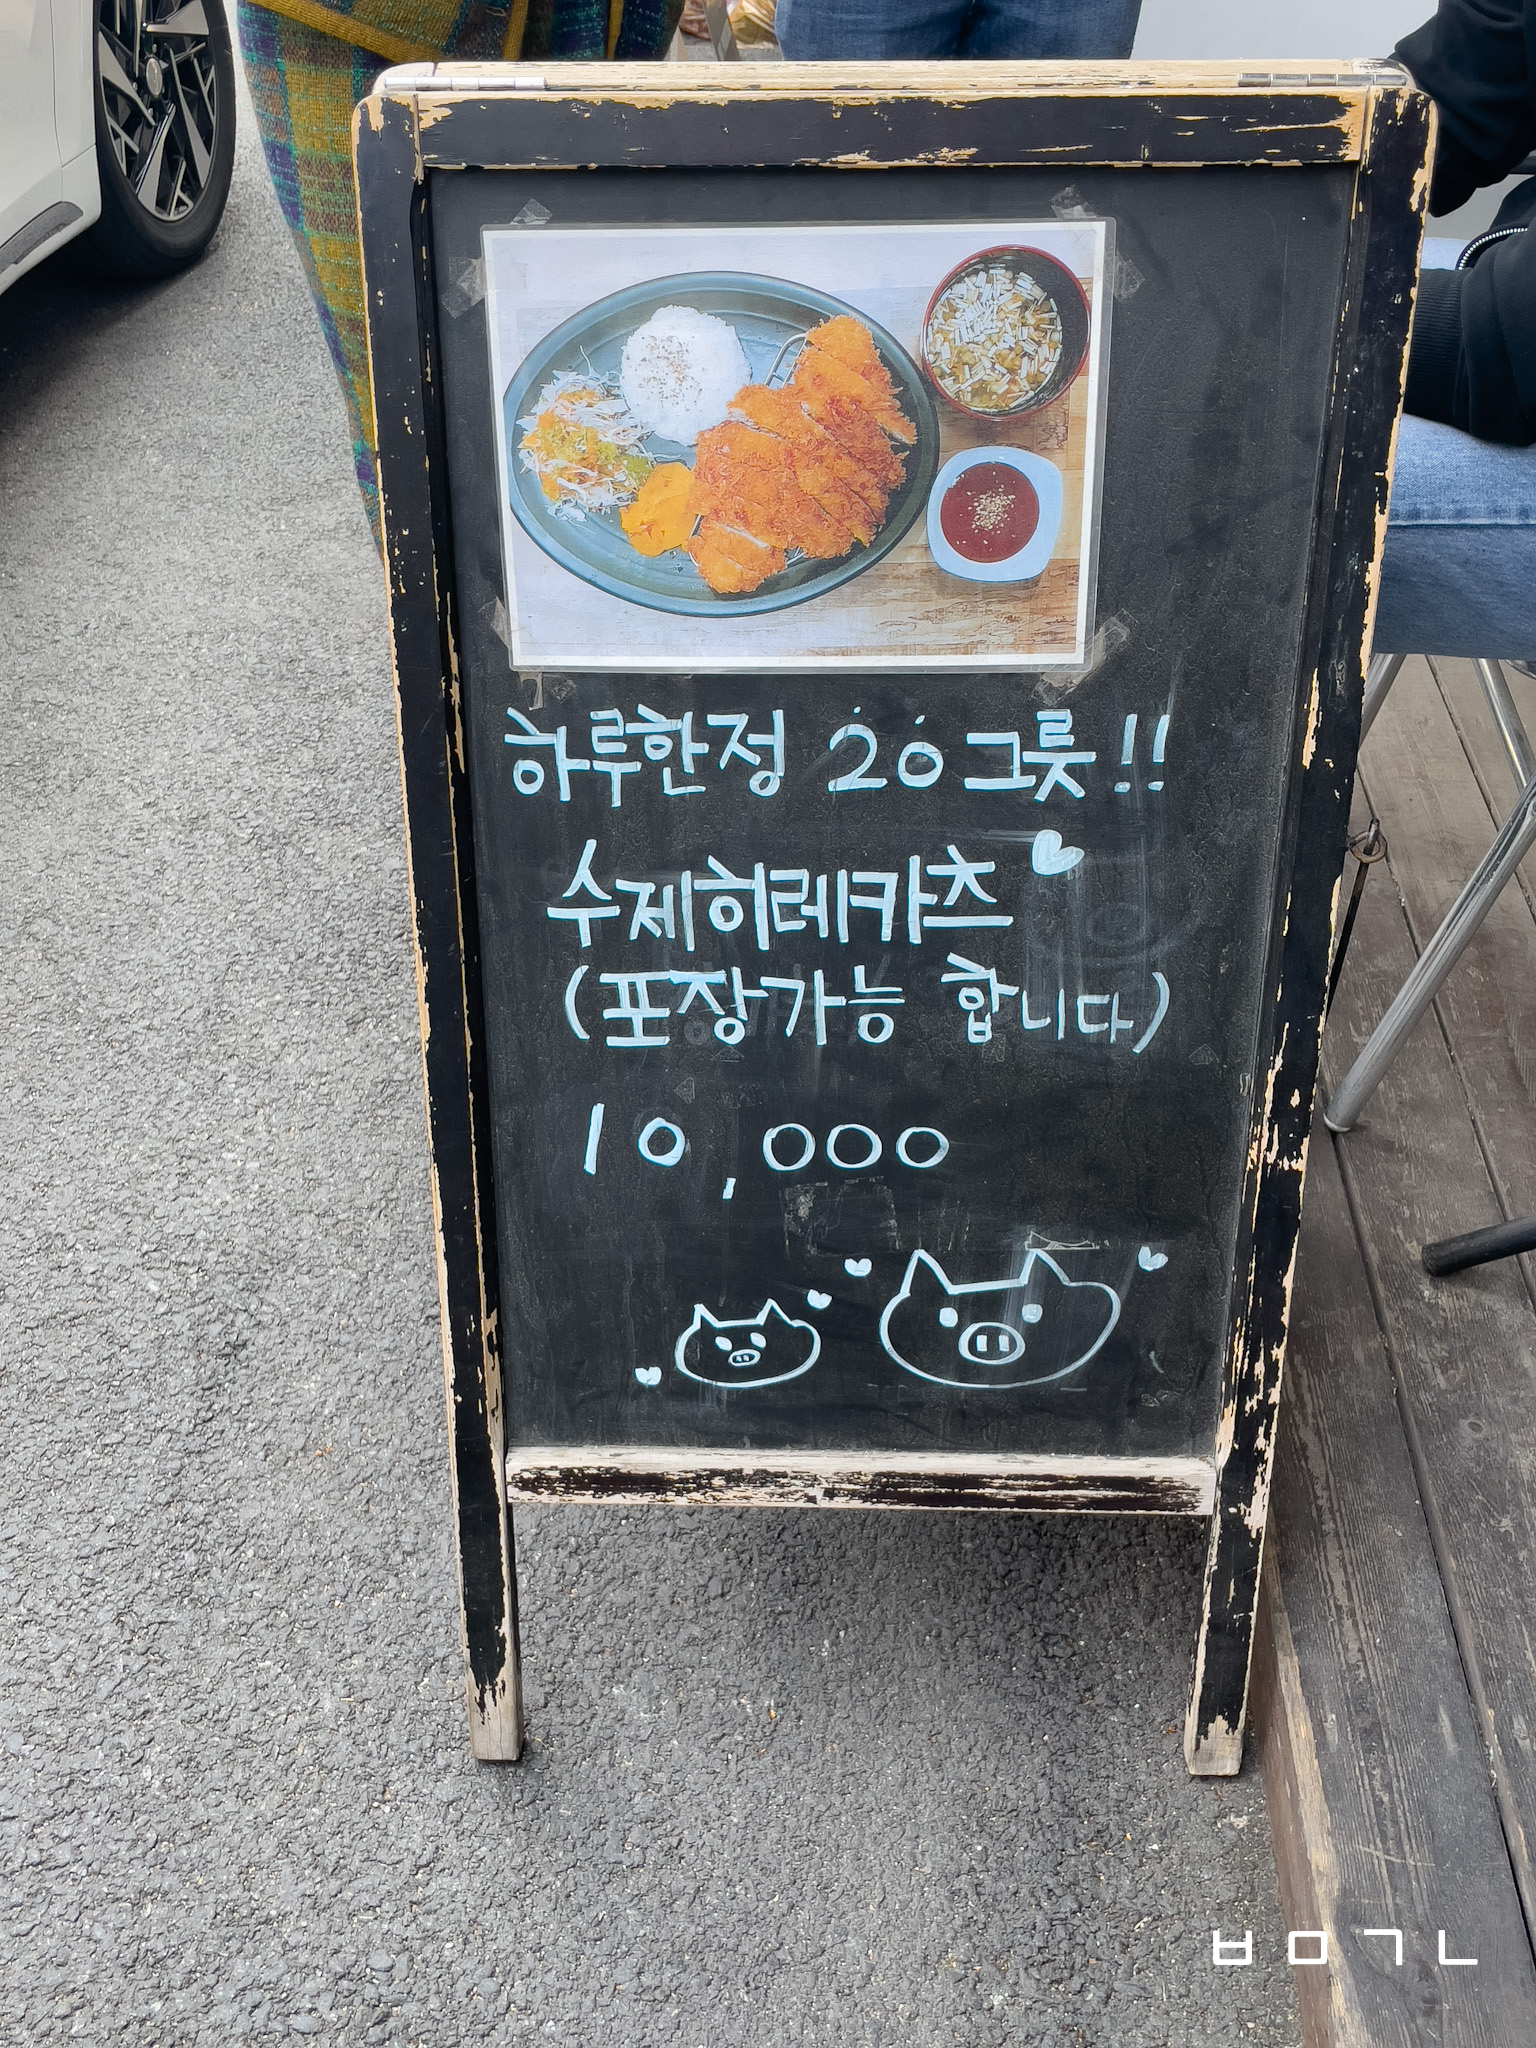 하루한정 20그릇!!
수제히레카츠
(포장가능 합니다)
10,000
ㅂㅇㄱㄴ